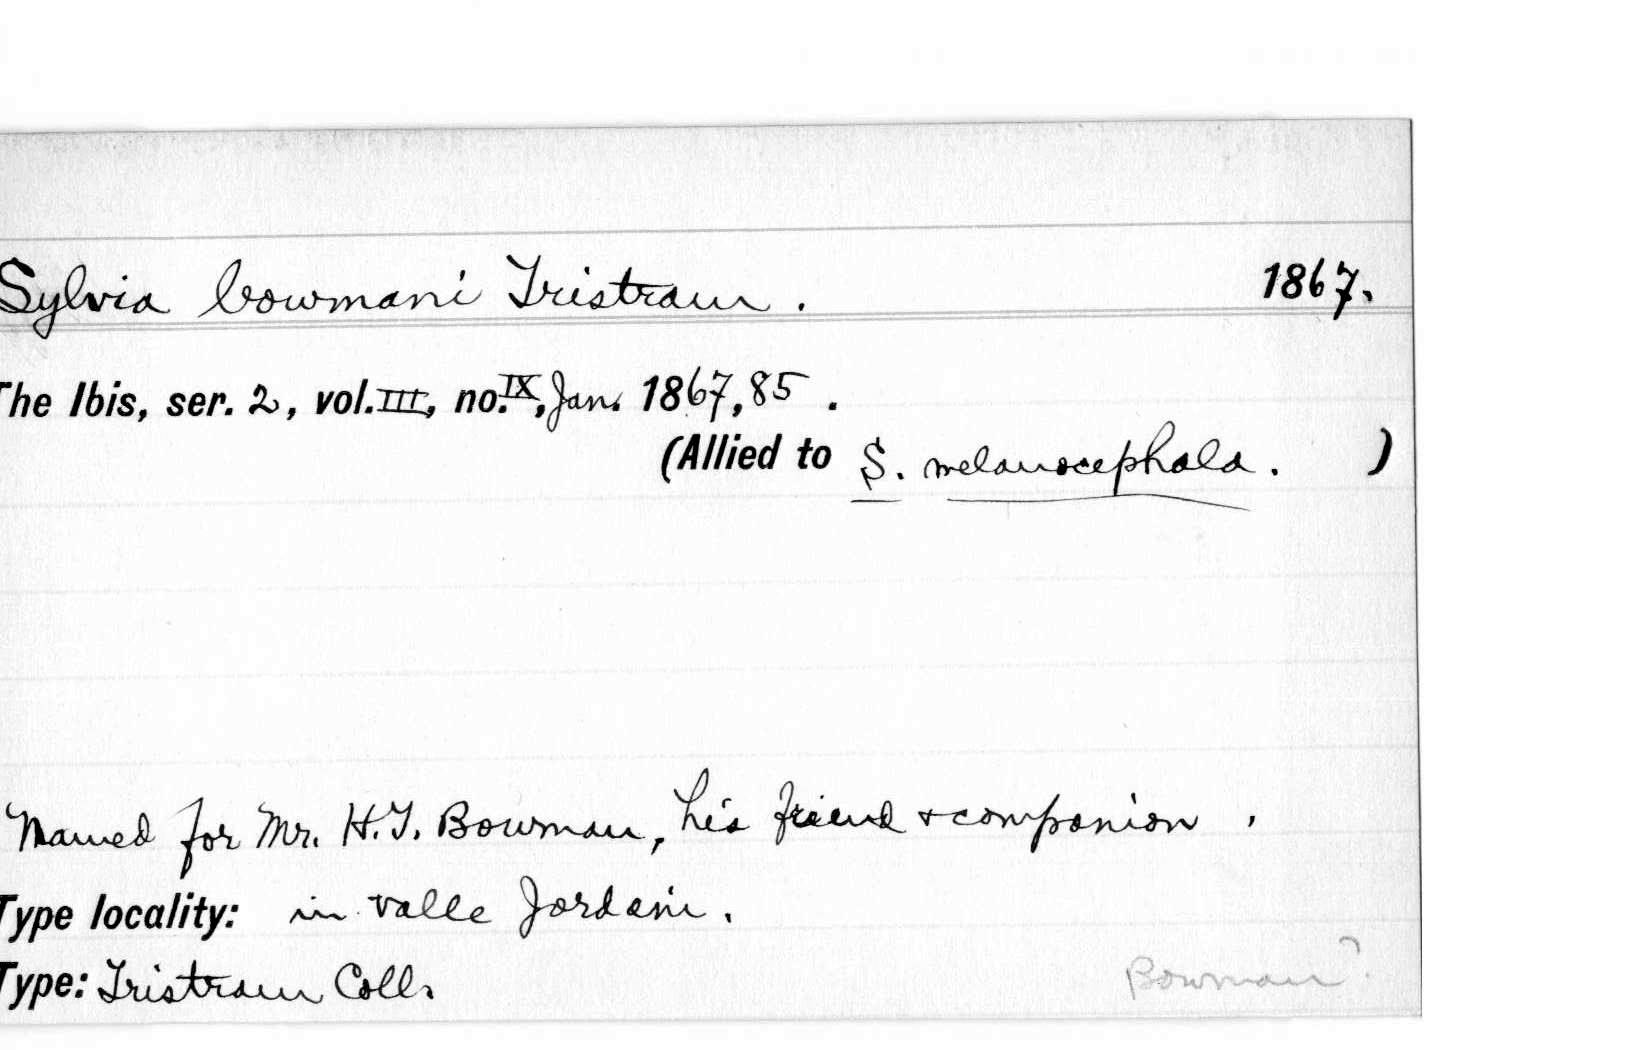 Sylvia bowmani Tristram. 1867.
The Ibis, ser. 2, vol. III, no. IX, Jan. 1867, 85.
(Allied to S. melanocephala. )
Named for Mr. H.T. Bowman, his friend & companion.
Type locality: in valle Jordani.
Type: Tristram Coll.
Bowman?